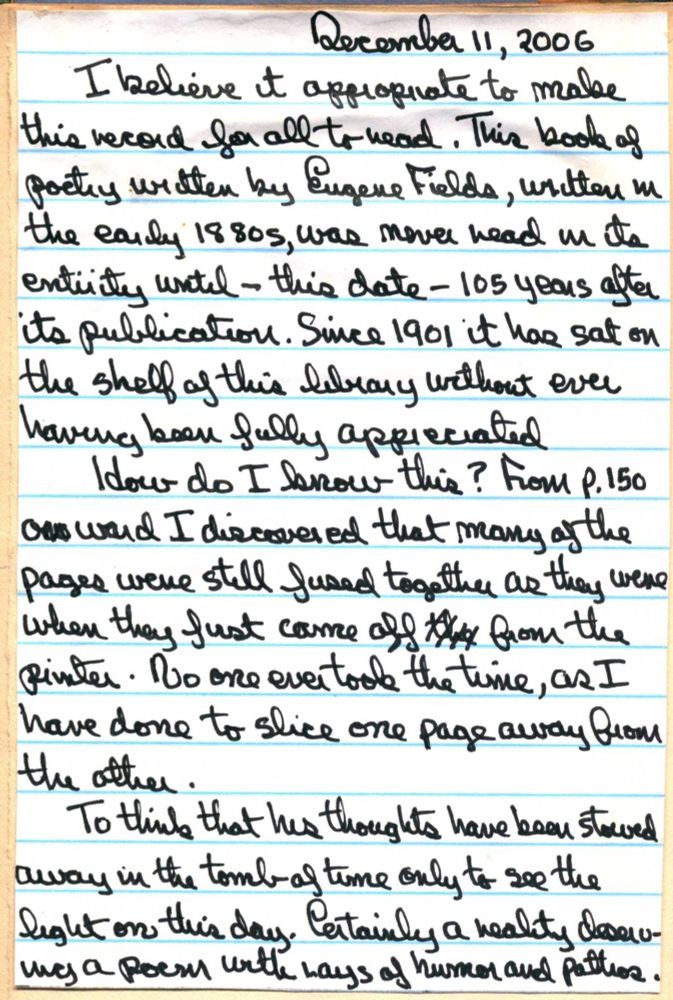 December 11, 2006
I believe it appropriate to make
this record for all to read. This book of
poetry written by Eugene Fields, written in
the early 1880s, was never read in its
entirity until - this date - 105 years after
its publication. Since 1901 it has sat on
the shelf of this library without ever
having been fully appreciated
How do I know this? From p.150
onward I discovered that many of the
pages were still fused together as they were
when they first came off from the
printer. No one ever took the time, as I
have done to slice one page away from
the other.
To think that his thoughts have been stowed
away in the tomb of time only to see the
light on this day. Certainly a reality deserv-
ing a poem with rays of humor and pathos.